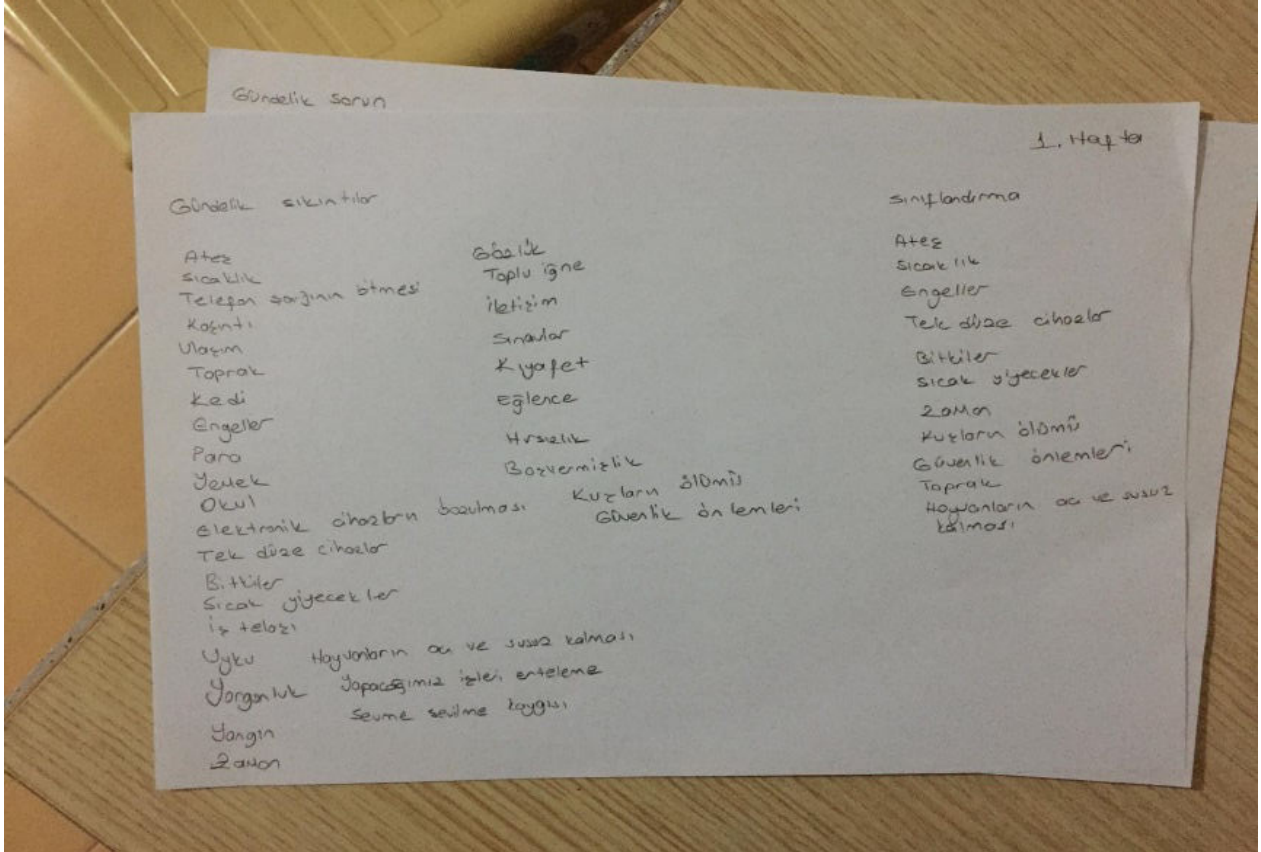 Gündelik sorun
1. Hafta
Gündelik sıkıntılar
Ateş
Sıcaklık
Telefon şarjının bitmesi
Kaşıntı
Ulaşım
Toprak
Kedi
Engeller
Para
Yemek
Okul
Elektronik cihazların bozulması
Tek düze cihazlar
Bitkiler
Sıcak yiyecekler
İş telaşı
Uyku
Yorgunluk
Yangın
Zaman
Hayvanların aç ve susuz kalması
Yapacağımız işleri erteleme
Sevme sevilme kaygısı
Gözlük
Toplu iğne
İletişim
Sınavlar
Kıyafet
Eğlence
Hırsızlık
Boşvermişlik
Kuşların ölümü
Güvenlik önlemleri
Sınıflandırma
Ateş
Sıcaklık
Engeller
Tek düze cihazlar
Bitkiler
Sıcak yiyecekler
Zaman
Kuşların ölümü
Güvenlik önlemleri
Toprak
Hayvanların aç ve susuz
kalması